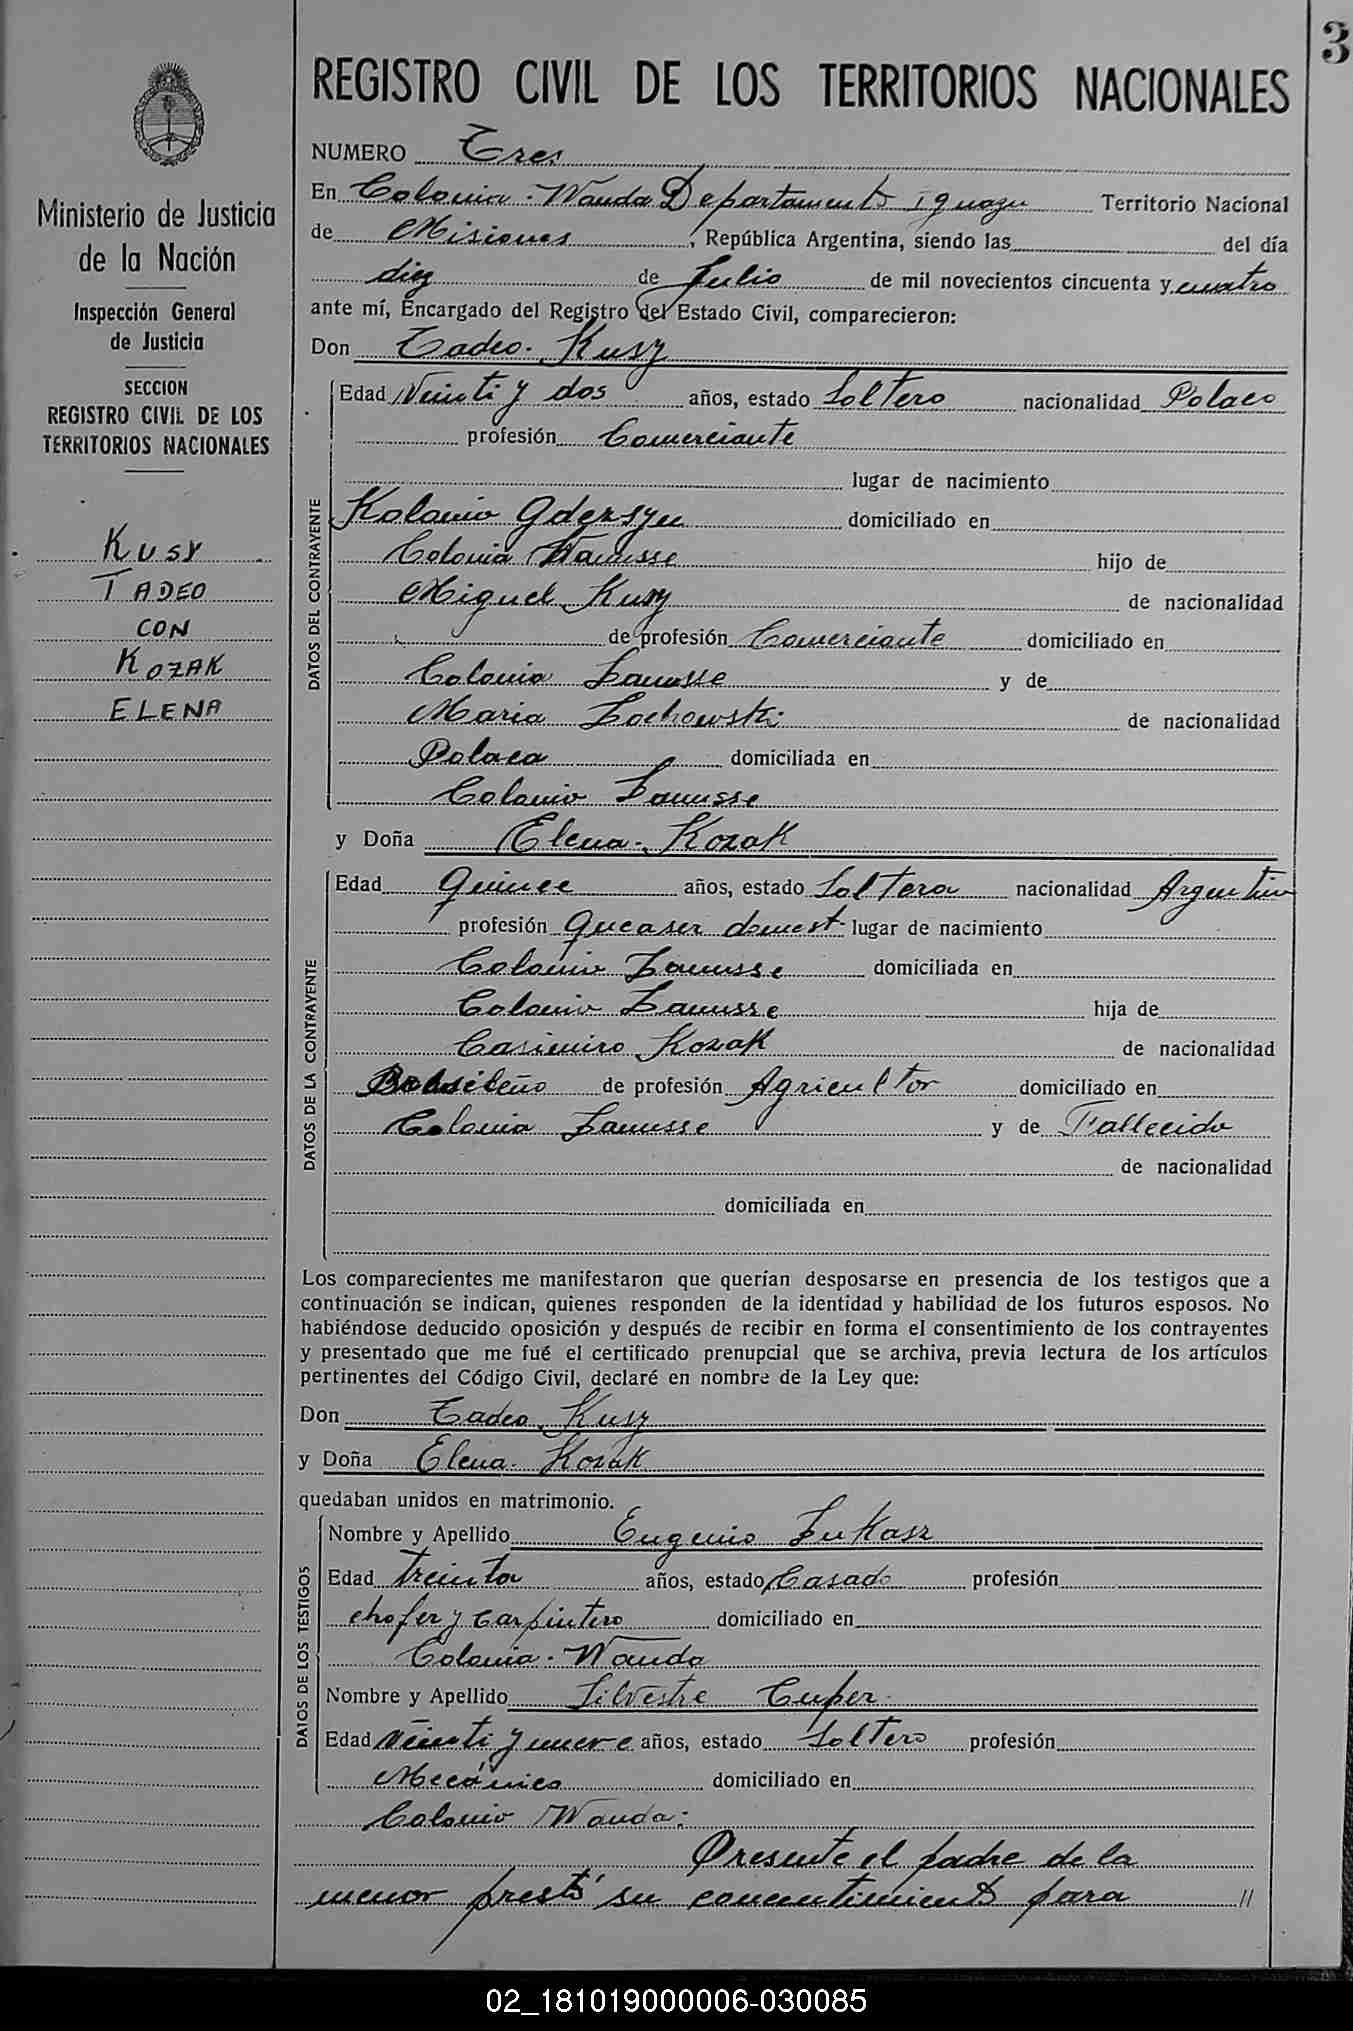 3
REGISTRO CIVIL DE LOS TERRITORIOS NACIONALES
Ministerio de Justicia
de la Nación
Inspección General
de Justicia
SECCION
REGISTRO CIVIL DE LOS
TERRITORIOS NACIONALES
KUSY
TADEO
CON
KOZAK
ELENA
NUMERO Tres
En Colonia - Wanda Departamento iguazu Territorio Nacional
de Misiones, República Argentina, siendo las del día
diez de Julio de mil novecientos cincuenta y cuatro
ante mí, Encargado del Registro del Estado Civil, comparecieron:
Don Tadeo - Kusy
DATOS DEL CONTRAYENTE
Edad Veinti y dos años, estado Soltero nacionalidad Polaco
profesión Comerciante
lugar de nacimiento
Kolonio domiciliado en
Colonia Lanusse hijo de
Miguel Kusy de nacionalidad
de profesión Comerciante domiciliado en
Colonia Lanusse y de
Maria Lochowski de nacionalidad
Polaca domiciliada en
Colonia Lanusse
y Doña Elena - Kozak
DATOS DE LA CONTRAYENTE
Edad Quince años, estado Soltera nacionalidad Argentina
profesión Queaser domest. lugar de nacimiento
Colonia Lanusse domiciliada en
Colonia Lanusse hija de
Casimiro Kozak de nacionalidad
Brasileño de profesión Agricultor domiciliado en
Colonia Lanusse y de Fallecida
de nacionalidad
domiciliada en
Los comparecientes me manifestaron que querían desposarse en presencia de los testigos que a
continuación se indican, quienes responden de la identidad y habilidad de los futuros esposos. No
habiéndose deducido oposición y después de recibir en forma el consentimiento de los contrayentes
y presentado que me fué el certificado prenupcial que se archiva, previa lectura de los artículos
pertinentes del Código Civil, declaré en nombre de la Ley que:
Don Tadeo Kusy
y Doña Elena - Kozak
quedaban unidos en matrimonio.
DATOS DE LOS TESTIGOS
Nombre y Apellido Eugenio Lukasz
Edad treinta años, estado Casado profesión
chofer y carpintero domiciliado en
Colonia - Wanda
Nombre y Apellido Silvestre Cuper
Edad Veinti y nueve años, estado Soltero profesión
Mecánico domiciliado en
Colonia Wanda:
Presente el padre de la
menor prestó su concentimiento para //
02_181019000006-030085